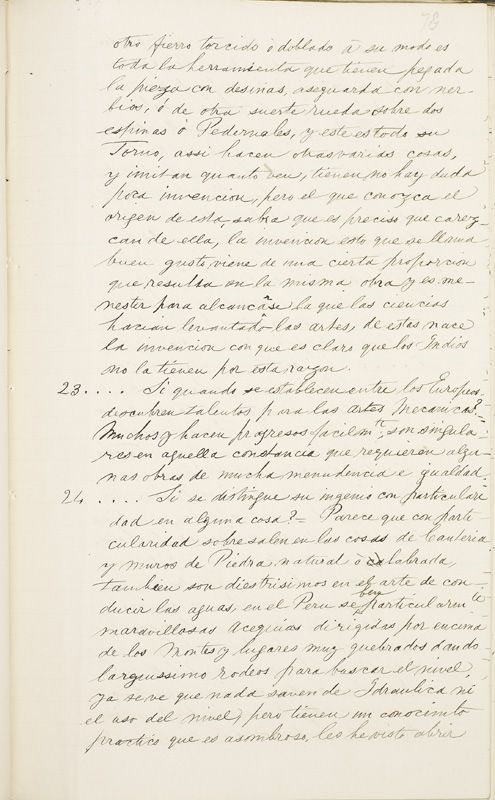 78
otro fierro torcido ó doblado á su modo es
toda la herramienta que tienen pegada
la pieza con desinas, asegurda con ner-
bios, ó de otra suerte rueda sobre dos
espinas ó Pedernales, y este es todo su
Torno, assi hacen otras varias cosas,
y imitan quanto ven, tienen no hay duda
poca invencion, pero el que conozca el
origen de esta, sabra que es preciso que carez-
can de ella, la invencion esto que se llama
buen gusto, viene de una cierta proporcion
que resulta en la misma obra y es me-
nester para alcancarse la que las ciencias
hacian levantado las artes, de estas nace
la invencion con que es claro que los Indios
no la tienen por esta razon.
23.... Si quando se establecen entre los Europeos
descubren talentos para las artes Mecanicas?=
Muchos y hacen progresos facilmte, son singula
res en aquella constancia que requieren algu-
nas obras de mucha menudencia e igualdad
24.... Si se distingue su ingenio con particulari
dad en alguna cosa?= Parece que con parti
cularidad sobresalen en las cosas de Canteria
y muros de Piedra natural ó labrada,
tambien son diestrisimos en el arte de con-
ducir las aguas, en el Peru se ben particularmte
maravillosas Acequias dirigidas por encima
de los Montes y lugares muy quebrados dando
larguissimo rodeos para buscar el nivel,
ya se ve que nada saven de Idraulica ni
el uso del nivel, pero tienen un conocimto
practico que es asombroso, les he visto abrir